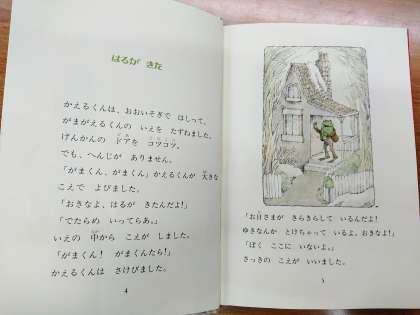 はるが きた
かえるくんは、おおいそぎで はしって、
がまがえるくんの いえを たずねました。
げんかんの ドアを コツコツ。
でも、へんじが ありません。
「がまくん、がまくん」かえるくんが 大きな
こえで よびました。
「おきなよ、はるが きたんだよ!」
「でたらめ いってらあ。」
いえの 中から こえが しました。
「がまくん! がまくんたら!」
かえるくんは さけびました。
4
「お日さまが きらきらして いるんだよ!
ゆきなんか とけちゃって いるよ、おきなよ!」
「ぼく ここに いないよ。」
さっきの こえが いいました。
5